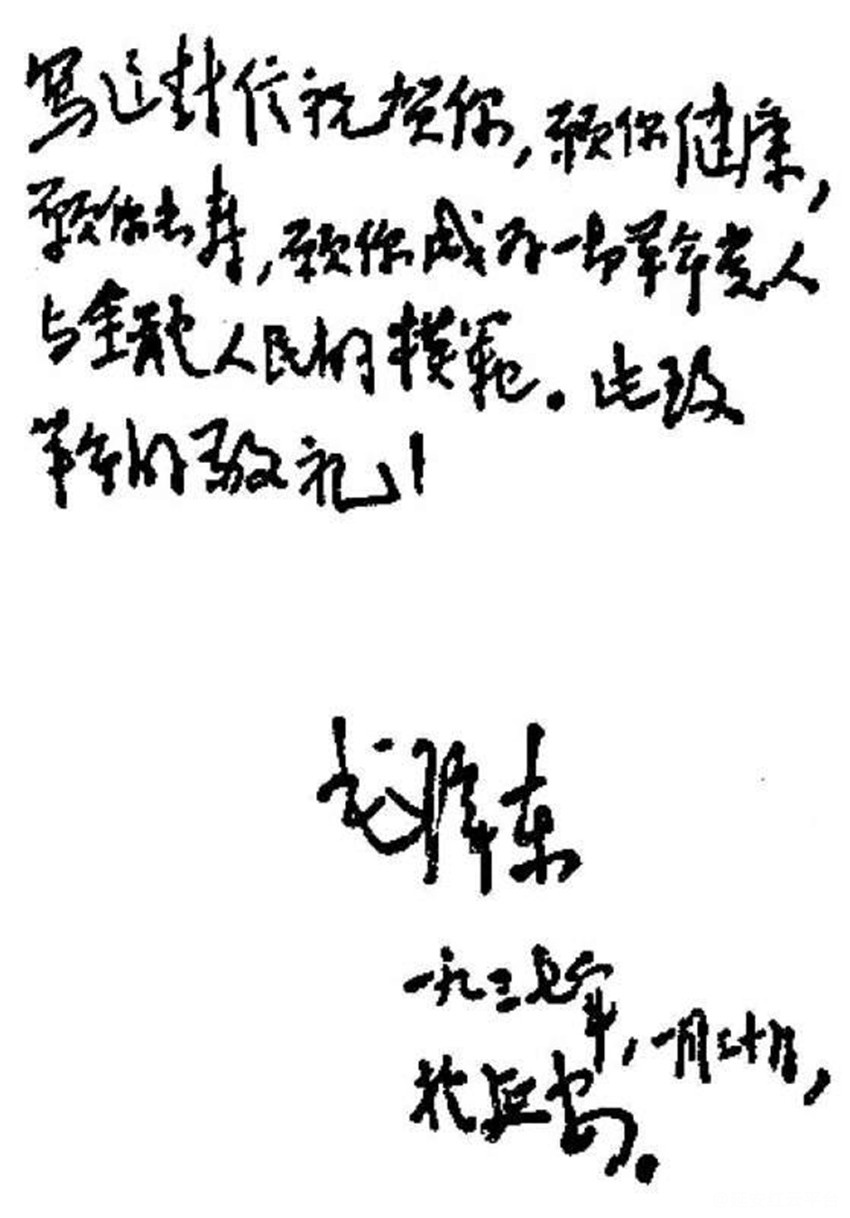 写这封信祝贺你，愿你健康，
愿你长寿，愿你成为一切革命党人
与全体人民的模范。此致
革命的敬礼！
毛泽东
一九三七年，一月三十日，
於延安。